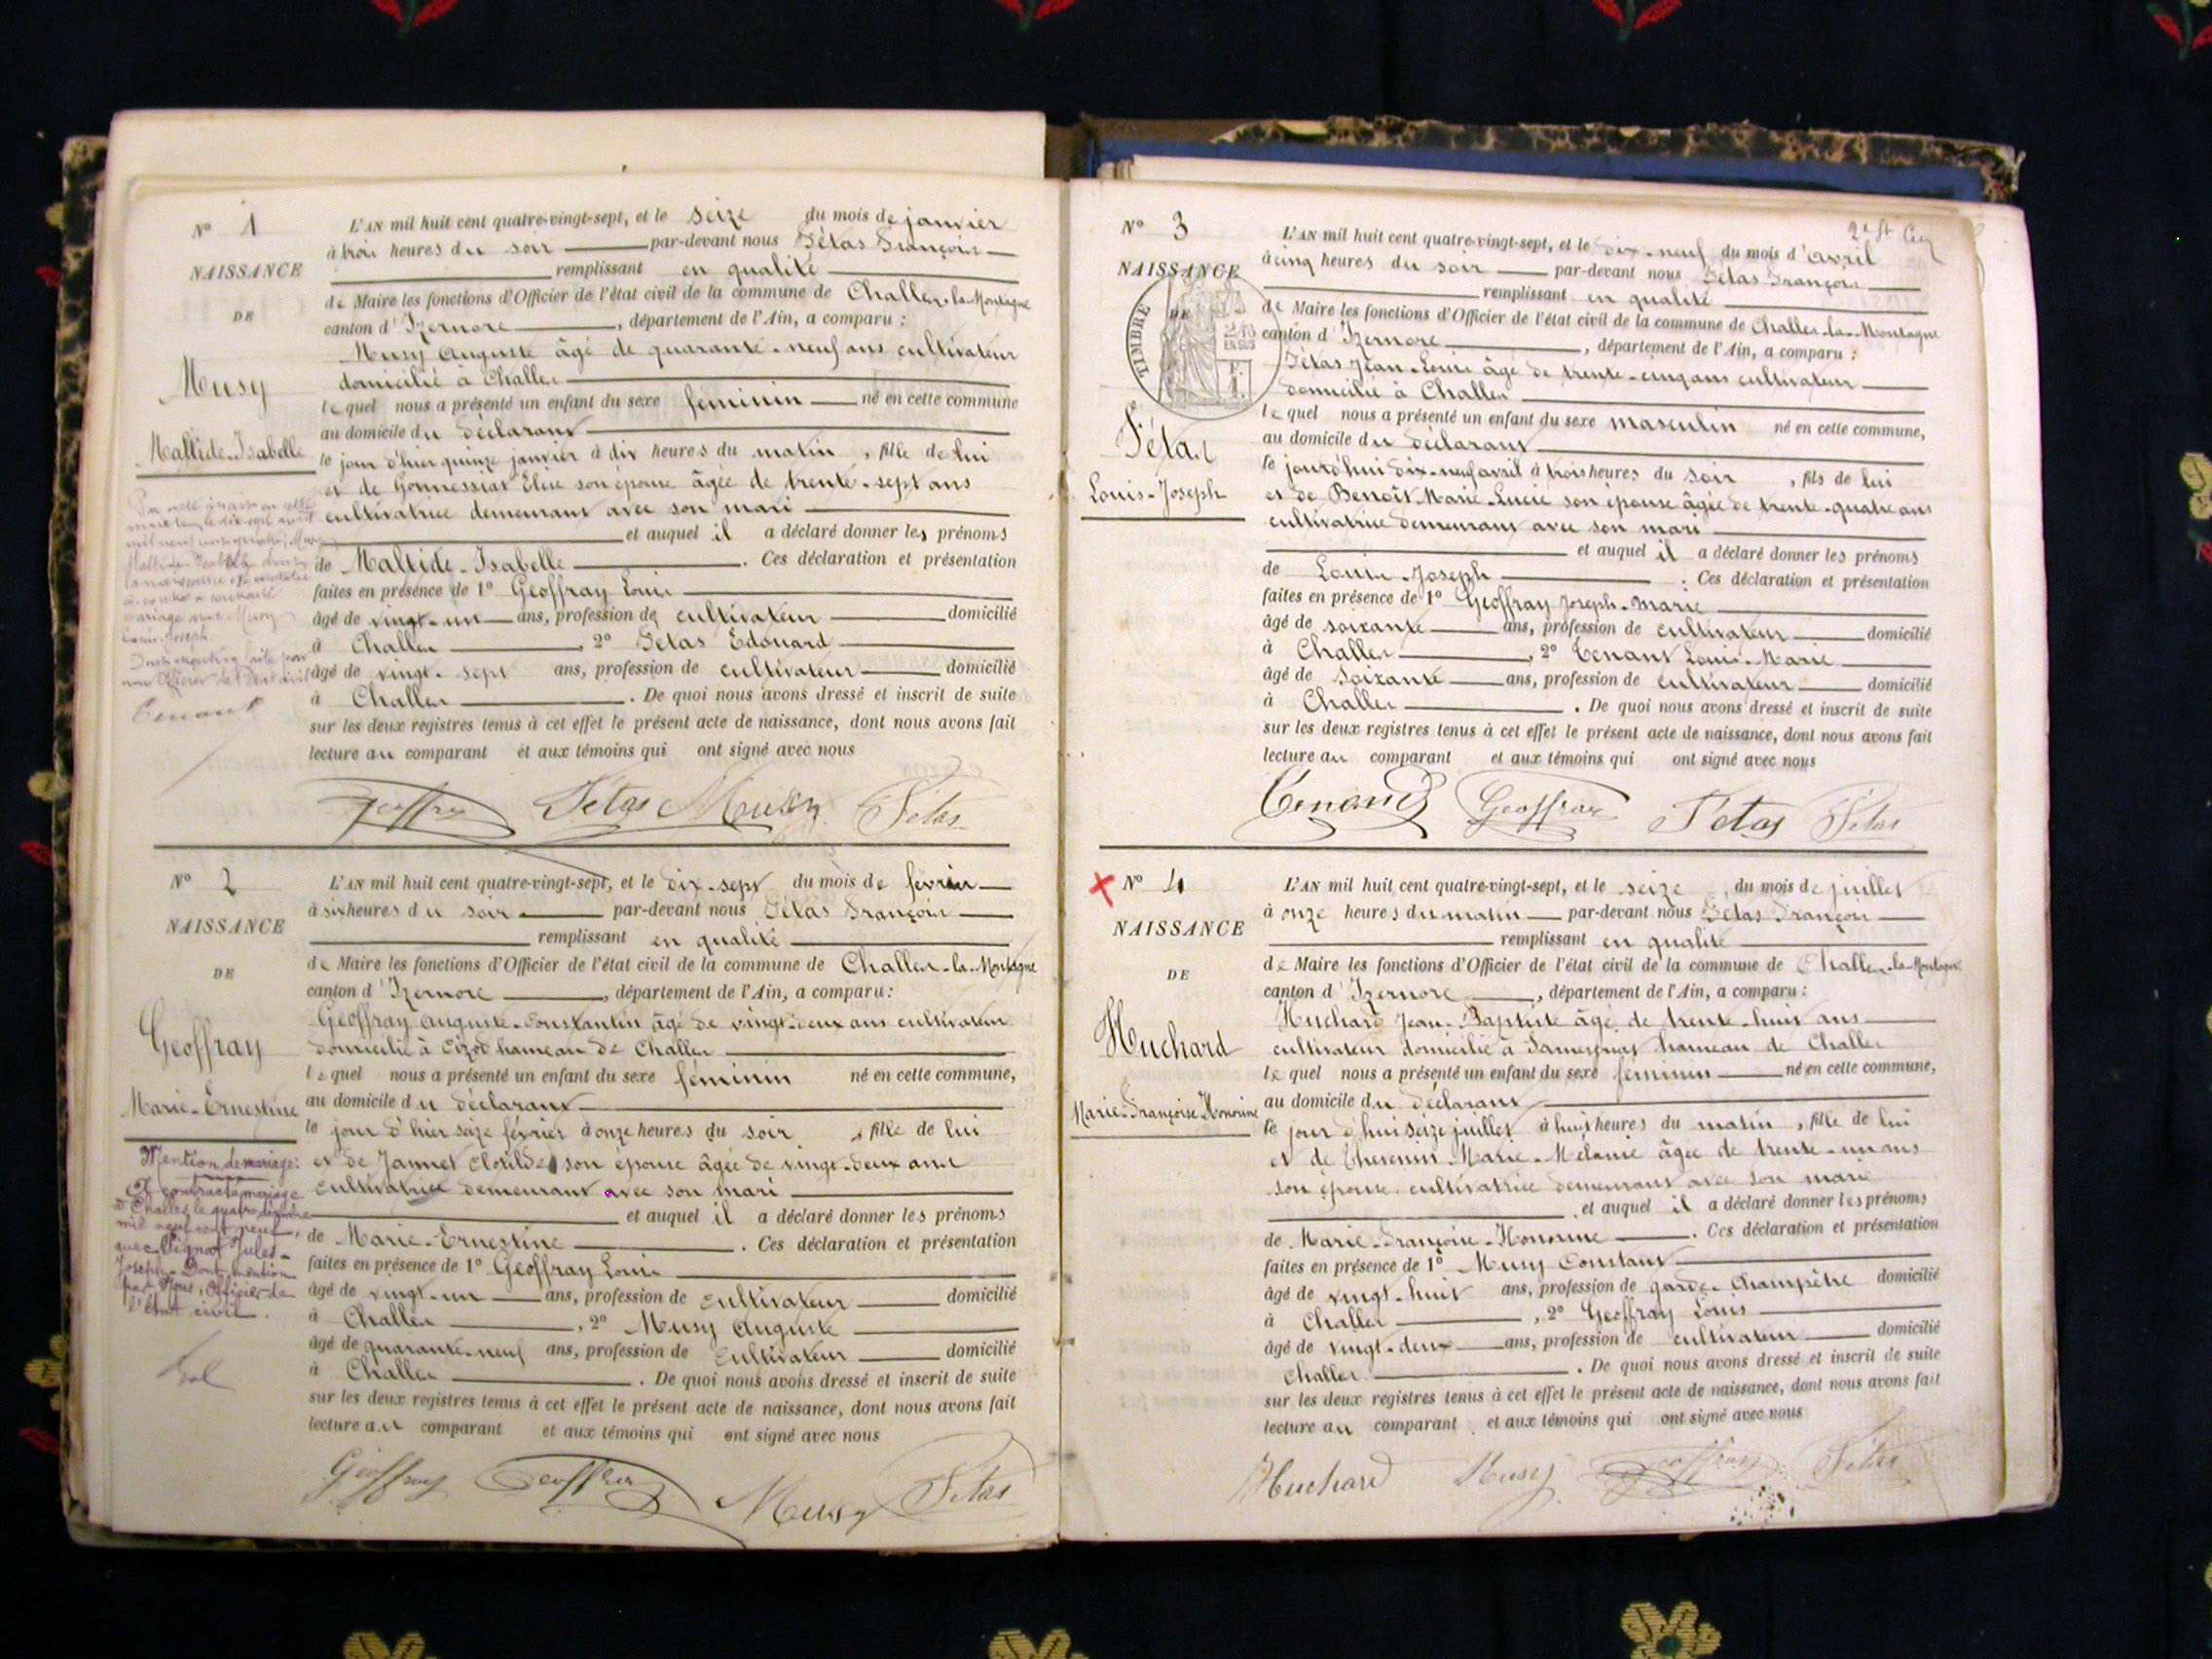 N° 1
NAISSANCE
DE
Musy
Maltide-Isabelle
L'AN mil huit cent quatre-vingt-sept, et le seize du mois de janvier
à trois heures du soir par-devant nous Tétas François
remplissant en qualité
de Maire les fonctions d'Officier de l'état civil de la commune de Challes-la-Montagne
canton d'Izernore, département de l'Ain, a comparu :
Musy Auguste âgé de quarante-neuf ans cultivateur
domicilié à Challes
lequel nous a présenté un enfant du sexe féminin né en cette commune
au domicile du déclarant
le jour d'hier quinze janvier à dix heures du matin, fille de lui
et de Gonnessiat Elise son épouse âgée de trente-sept ans
cultivatrice demeurant avec son mari
et auquel il a déclaré donner les prénoms
de Maltide-Isabelle. Ces déclaration et présentation
faites en présence de 1° Geoffray Louis
âgé de vingt-un ans, profession de cultivateur domicilié
à Challes, 2° Tétas Edouard
âgé de vingt-sept ans, profession de cultivateur domicilié
à Challes. De quoi nous avons dressé et inscrit de suite
sur les deux registres tenus à cet effet le présent acte de naissance, dont nous avons fait
lecture au comparant et aux témoins qui ont signé avec nous
Geoffray Tétas Musy Tétas
N° 2
NAISSANCE
DE
Geoffray
Marie-Ernestine
Mention de mariage:
A contracté mariage
à Challes le quatre décembre
mil neuf cent neuf,
avec Vignot Jules-
Joseph. Dont mention
par Nous, Officier de
l'état civil.
L'AN mil huit cent quatre-vingt-sept, et le dix-sept du mois de février
à six heures du soir par-devant nous Tétas François
remplissant en qualité
de Maire les fonctions d'Officier de l'état civil de la commune de Challes-la-Montagne
canton d'Izernore, département de l'Ain, a comparu :
Geoffray Auguste-Constantin âgé de vingt-deux ans cultivateur
domicilié à Cizod hameau de Challes
lequel nous a présenté un enfant du sexe féminin né en cette commune,
au domicile du déclarant
le jour d'hier seize février à onze heures du soir, fille de lui
et de Jannet Clotilde son épouse âgée de vingt-deux ans
cultivatrice demeurant avec son mari
et auquel il a déclaré donner les prénoms
de Marie-Ernestine. Ces déclaration et présentation
faites en présence de 1° Geoffray Louis
âgé de vingt-un ans, profession de cultivateur domicilié
à Challes, 2° Musy Auguste
âgé de quarante-neuf ans, profession de cultivateur domicilié
à Challes. De quoi nous avons dressé et inscrit de suite
sur les deux registres tenus à cet effet le présent acte de naissance, dont nous avons fait
lecture au comparant et aux témoins qui ont signé avec nous
Geoffray Geoffray Musy Tétas
N° 3
NAISSANCE
DE
TIMBRE
Tétas
Louis-Joseph
L'AN mil huit cent quatre-vingt-sept, et le dix-neuf du mois d'avril
à cinq heures du soir par-devant nous Tétas François
remplissant en qualité
de Maire les fonctions d'Officier de l'état civil de la commune de Challes-la-Montagne
canton d'Izernore, département de l'Ain, a comparu :
Tétas Jean-Louis âgé de trente-cinq ans cultivateur
domicilié à Challes
lequel nous a présenté un enfant du sexe masculin né en cette commune,
au domicile du déclarant
le jourd'hui dix-neuf avril à trois heures du soir, fils de lui
et de Benoît Marie-Lucie son épouse âgée de trente-quatre ans
cultivatrice demeurant avec son mari
et auquel il a déclaré donner les prénoms
de Louis-Joseph. Ces déclaration et présentation
faites en présence de 1° Geoffray Joseph-Marie
âgé de soixante ans, profession de cultivateur domicilié
à Challes, 2° Tenant Louis-Marie
âgé de soixante ans, profession de cultivateur domicilié
à Challes. De quoi nous avons dressé et inscrit de suite
sur les deux registres tenus à cet effet le présent acte de naissance, dont nous avons fait
lecture au comparant et aux témoins qui ont signé avec nous
Tenand Geoffray Tétas Tétas
N° 4
NAISSANCE
DE
Huchard
Marie-Françoise-Honorine
L'AN mil huit cent quatre-vingt-sept, et le seize du mois de juillet
à onze heures du matin par-devant nous Tétas François
remplissant en qualité
de Maire les fonctions d'Officier de l'état civil de la commune de Challes-la-Montagne
canton d'Izernore, département de l'Ain, a comparu :
Huchard Jean-Baptiste âgé de trente-huit ans
cultivateur domicilié à hameau de Challes
lequel nous a présenté un enfant du sexe féminin né en cette commune,
au domicile du déclarant
le jour d'hui seize juillet à huit heures du matin, fille de lui
et de Thevenin Marie-Mélanie âgée de trente-un ans
son épouse cultivatrice demeurant avec son mari
et auquel il a déclaré donner les prénoms
de Marie-Françoise-Honorine. Ces déclaration et présentation
faites en présence de 1° Musy Constant
âgé de vingt-huit ans, profession de garde-Champêtre domicilié
à Challes, 2° Geoffray Louis
âgé de vingt-deux ans, profession de cultivateur domicilié
Challes. De quoi nous avons dressé et inscrit de suite
sur les deux registres tenus à cet effet le présent acte de naissance, dont nous avons fait
lecture au comparant et aux témoins qui ont signé avec nous
Huchard Musy Geoffray Tétas